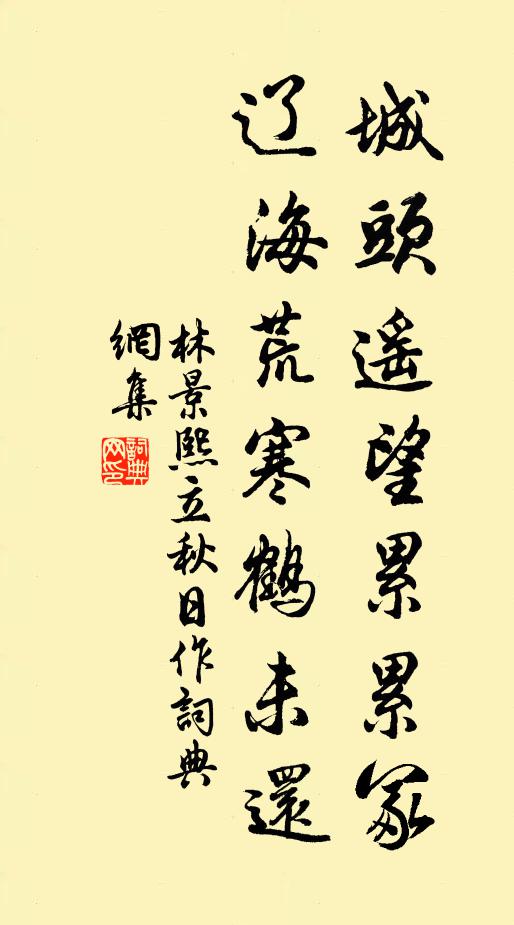 城頭遥望累累冢
辽海荒寒鶴未還
林景熙立秋日作詞典
網集
詞典
网印